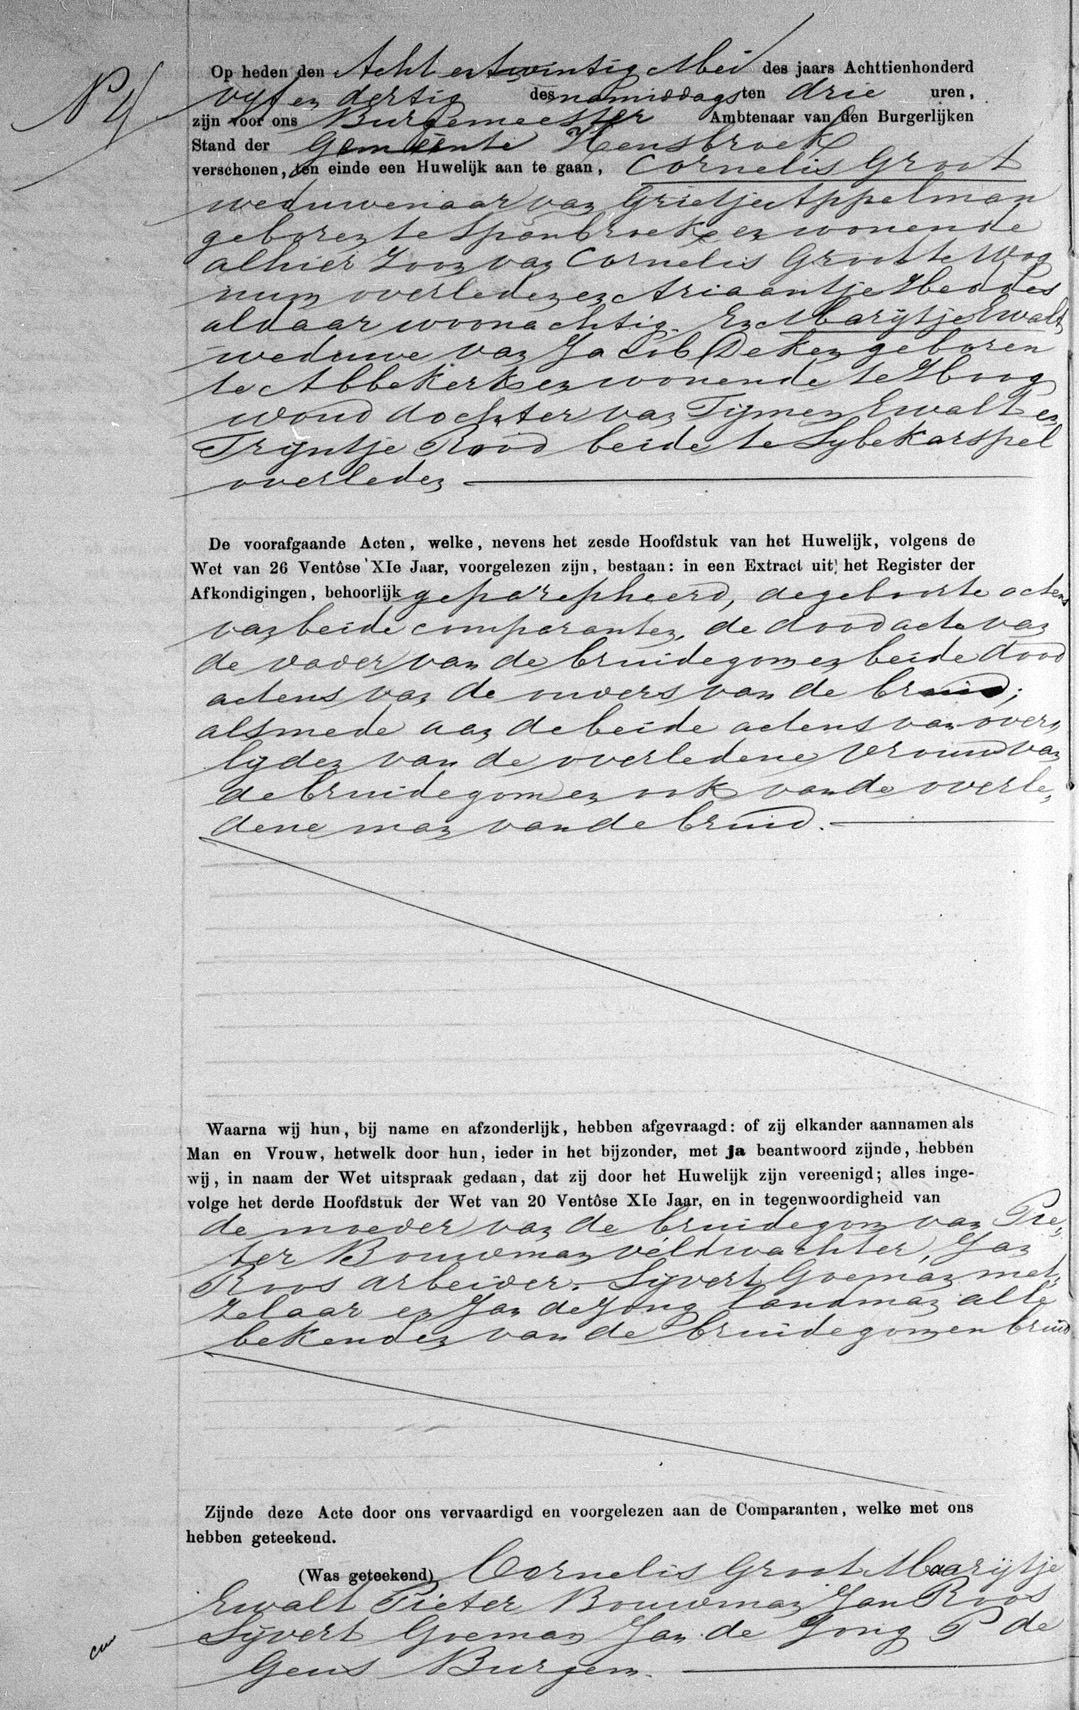 N° 4
Op heden den Acht en twintig Mei des jaars Achttienhonderd
vyf en dertig des namiddags ten drie uren,
zijn voor ons Burgemeester Ambtenaar van den Burgerlijken
Stand der Gemeente Hensbroek
verschenen, ten einde een Huwelijk aan te gaan, Cornelis Groot
weduwenaar van Grietje Appelman
geboren te Spanbroek en wonende
alhier Zoon van Cornelis Groot te Wog
num overleden en Ariaantje
aldaar woonachtig. En Marijtje Ewalt
weduwe van Jacob Deken geboren
te Abbekerk en wonende te Hoog
woud dochter van Tijmen Ewalt en
Trijntje Rood beide te Sybekarspel
overleden
De voorafgaande Acten, welke, nevens het zesde Hoofdstuk van het Huwelijk, volgens de
Wet van 26 Ventôse XIe Jaar, voorgelezen zijn, bestaan: in een Extract uit het Register der
Afkondigingen, behoorlijk geparepheerd, de geboorte actens
van beide comparanten, de dood acte van
de vader van de bruidegom en beide dood
actens van de ouders van de bruid;
alsmede aan de beide actens van over,
lyden van de overledene vrouw van
de bruidegom en ook van de overle,
dene man van de bruid.
Waarna wij hun, bij name en afzonderlijk, hebben afgevraagd: of zij elkander aannamen als
Man en Vrouw, hetwelk door hun, ieder in het bijzonder, met ja beantwoord zijnde, hebben
wij, in naam der Wet uitspraak gedaan, dat zij door het Huwelijk zijn vereenigd; alles inge-
volge het derde Hoofdstuk der Wet van 20 Ventôse XIe Jaar, en in tegenwoordigheid van
de moeder van de bruidegom van Pie,
ter Bouwman veldwachter, Jan
Roos arbeider. Sijvert Goeman met,
zelaar en Jan de Jong landman alle
bekenden van de bruidegom en bruid
Zijnde deze Acte door ons vervaardigd en voorgelezen aan de Comparanten, welke met ons
hebben geteekend.
(Was geteekend) Cornelis Groot Maarijtje
Ewalt Pieter Bouwman Jan Roos
Sijvert Goeman Jan de Jong P de
Geus Burgem.